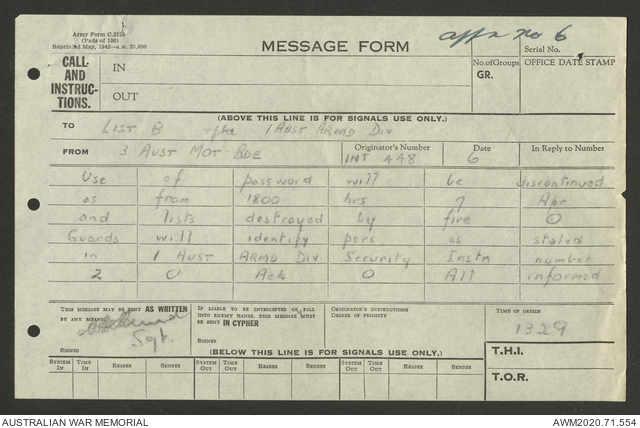 Army Form C.2128
(Pads of 100)
Reprinted May, 1942
MESSAGE FORM
appx no 6
Serial No.
CALL-AND INSTRUC-TIONS.
IN
OUT
No. of Groups
GR.
OFFICE DATE STAMP
(ABOVE THIS LINE IS FOR SIGNALS USE ONLY.)
TO LIST B rptd 1 AUST ARMD DIV
FROM 3 AUST MOT BDE
Originator's Number INT 448
Date 6
In Reply to Number
Use of password will be discontinued
as from 1800 hrs 7 Apr
and lists destroyed by fire O
Guards will identify pers as stated
in 1 AUST ARMD DIV Security Instn number
2 O Ack O All informed
THIS MESSAGE MAY BE SENT AS WRITTEN BY ANY MEANS
Sgt.
SIGNED
IF LIABLE TO BE INTERCEPTED OR FALL INTO ENEMY HANDS, THIS MESSAGE MUST BE SENT IN CYPHER
SIGNED
ORIGINATOR'S INSTRUCTIONS
DEGREE OF PRIORITY
TIME OF ORIGIN
1329
T.H.I.
T.O.R.
(BELOW THIS LINE IS FOR SIGNALS USE ONLY.)
SYSTEM IN TIME IN READER SENDER SYSTEM OUT TIME OUT READER SENDER SYSTEM OUT TIME OUT READER SENDER
AUSTRALIAN WAR MEMORIAL
AWM2020.71.554